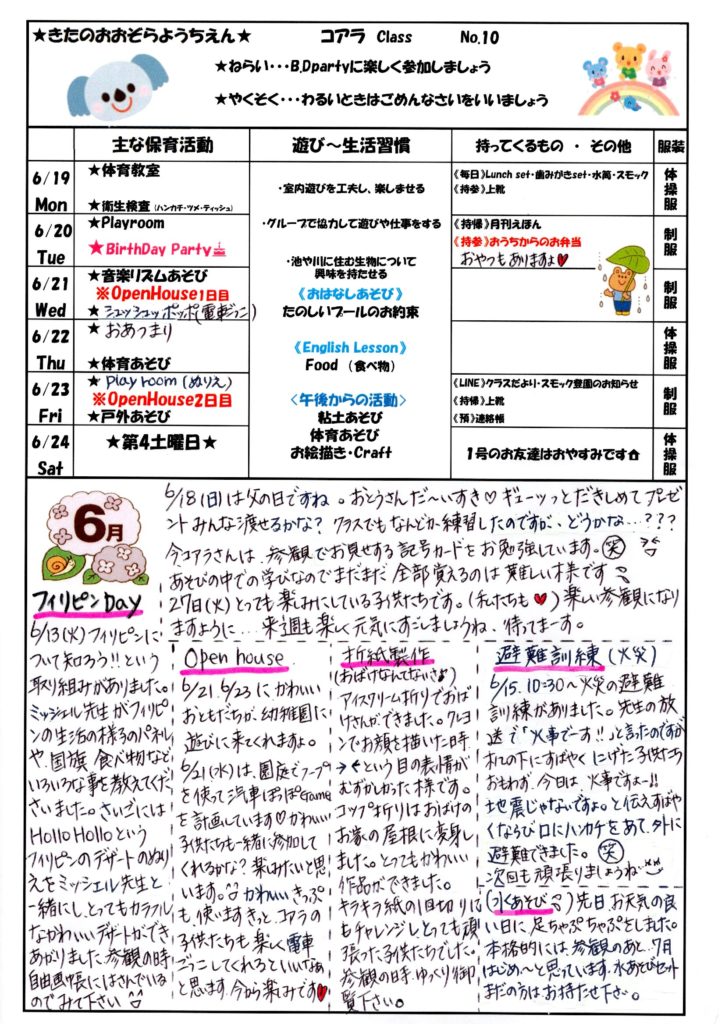 ★きたのおおぞらようちえん★ コアラ Class No.10
★ねらい・・・B.Dpartyに楽しく参加しましょう
★やくそく・・・わるいときはごめんなさいをいいましょう
主な保育活動 遊び～生活習慣 持ってくるもの ・ その他 服装
6/19
Mon
★体育教室
★衛生検査（ハンカチ・ツメ・ティッシュ）
6/20
Tue
★Playroom
★BirthDay Party
6/21
Wed
★音楽リズムあそび
※OpenHouse1日目
★シュッシュッポッポ(電車ごっこ)
6/22
Thu
★おあつまり
★体育あそび
6/23
Fri
★Playroom (ぬりえ)
※OpenHouse2日目
★戸外あそび
6/24
Sat
★第4土曜日★
・室内遊びを工夫し、楽しませる
・グループで協力して遊びや仕事をする
・池や川に住む生物について
興味を持たせる
《おはなしあそび》
たのしいプールのお約束
《English Lesson》
Food （食べ物）
＜午後からの活動＞
粘土あそび
体育あそび
お絵描き・Craft
《毎日》Lunch set・歯みがきset・水筒・スモック
《持参》上靴
《持帰》月刊えほん
《持参》おうちからのお弁当
おやつもありますよ♥
《LINE》クラスだより・スモック登園のお知らせ
《持帰》上靴
《預》連絡帳
1号のお友達はおやすみです
体操服
制服
制服
体操服
制服
体操服
6月
6/18(日)は父の日ですね。おとうさんだ～いすき♡ギューッっとだきしめてプレゼ
ントみんな渡せるかな？クラスでもなんどか練習したのですが、どうかな…？？？
今、コアラさんは、参観でお見せする記号カードをお勉強しています。(笑)
あそびの中での学びなのでまだまだ全部覚えるのは難しい様です
27日(火)とっても楽しみにしている子供たちです。(私たちも♥)楽しい参観になり
ますように…来週も楽しく元気にすごしましょうね。待ってまーす。
フィリピンDay
6/13(火)フィリピンに
ついて知ろう!!という
取り組みがありました。
ミッシェル先生がフィリピ
ンの生活の様子のパネル
や、国旗、食べ物など
いろいろな事を教えてくだ
さいました。さいごには
HolloHolloという
フィリピンのデザートのぬり
えをミッシェル先生と
一緒にし、とってもカラフル
なかわいいデザートができ
あがりました。参観の時
自由画帳にはさんでいる
のでみて下さい
Open house
6/21 6/23にかわいい
おともだちが幼稚園に
遊びに来てくれますよ。
6/21(水)は、園庭でフープ
を使って汽車ぽっぽGame
を計画しています♡かわいい
子供たちも一緒に参加して
くれるかな？楽しみたいと思
います。かわいいきっぷ
も使いますきっとコアラの
子供たちも楽しく電車
ごっこしてくれるといいなあ
と思います。今から楽しみです♥
折紙製作
(おばけなんてないさ♪)
アイスクリーム折りでおば
けさんができました。クレヨ
ンでお顔を描いた時
という目の表情が
むずかしかった様です。
コップ折りはおばけの
お家の屋根に変身し
ました。とってもかわいい
作品ができました。
キラキラ紙の1回切りに
もチャレンジしとっても頑
張った子供たちでした。
参観の時、ゆっくり御
覧下さい。
避難訓練(火災)
6/15. 10:30～火災の避難
訓練がありました。先生の放
送で「火事でーす!!」と言ったのですが
机の下にすばやくにげた子供たち
おもわず、今日は火事ですよー!!
地震じゃないですよ。と伝えすばや
くならび口にハンカチをあて、外に
避難できました。(笑)
次回も頑張りましょうね
(水あそび)先日お天気の良
い日に、足ちゃぷちゃぷをしました。
本格的には、参観のあと、7月
はじめ～と思っています。水あそびセット
まだの方はお持たせ下さい。